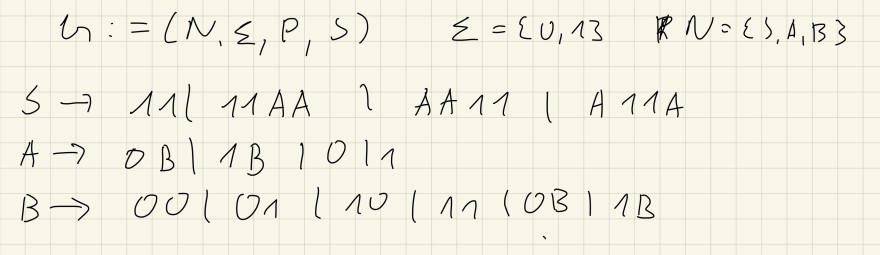 G := (N, Σ, P, S) Σ = {0,1} N = {S,A,B}
S → 11 | 11AA | AA11 | A11A
A → 0B | 1B | 0 | 1
B → 00 | 01 | 10 | 11 | 0B | 1B